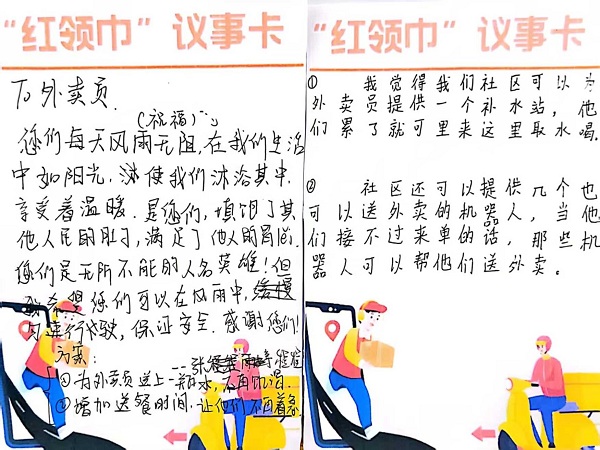 “红领巾”议事卡
To 外卖员.
(祝福)
您们每天风雨无阻,在我们生活
中如阳光,使我们沐浴其中.
享受着温暖.是您们,填饱了其
他人民的肚子,满足了他人的胃
您们是无所不能的人名英雄!但
我希望您们可以在风雨中,
行驶,保证安全.感谢您们!
方案
①为外卖员送上一瓶水,不再饥渴.
②增加送餐时间.让他们不再着急
“红领巾”议事卡
① 我觉得我们社区可以为
外卖员提供一个补水站,他
们累了就可里来这里取水喝.
② 社区还可以提供几个也
可以送外卖的机器人,当他
们接不过来单的话,那些机
器人可以帮他们送外卖。